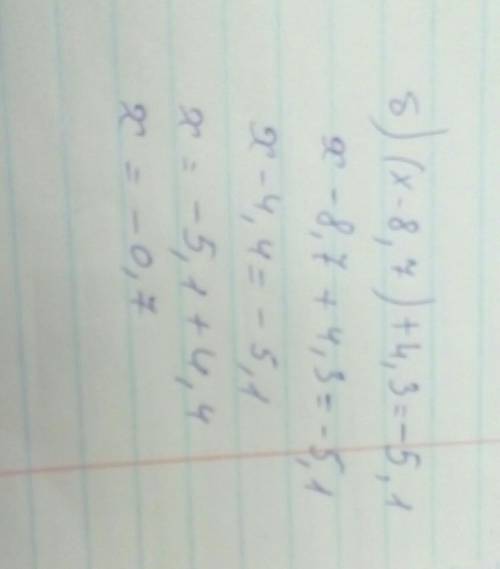 б) (x - 8,7) + 4,3 = -5,1
x - 8,7 + 4,3 = -5,1
x - 4,4 = -5,1
x = -5,1 + 4,4
x = -0,7